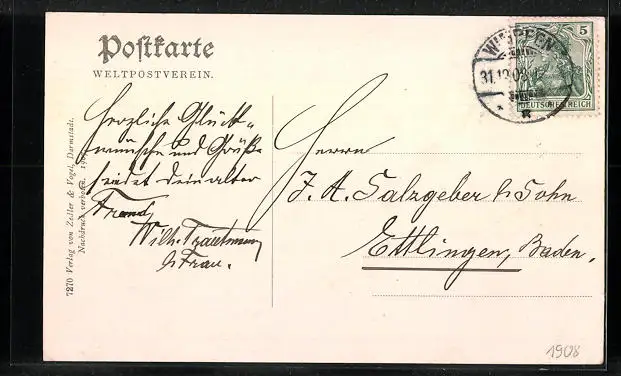 Postkarte
WELTPOSTVEREIN.
WIMPFEN
31.12.08
5
DEUTSCHES REICH
Herzliche Glück-
wünsche und Grüße
sendet dein alter
Freund
Wilh. Trautmann
& Frau.
Herrn
J. A. Salzgeber & Sohn
Ettlingen, Baden.
7270 Verlag von Zedler & Vogel, Darmstadt.
Nachdruck verboten.
1908